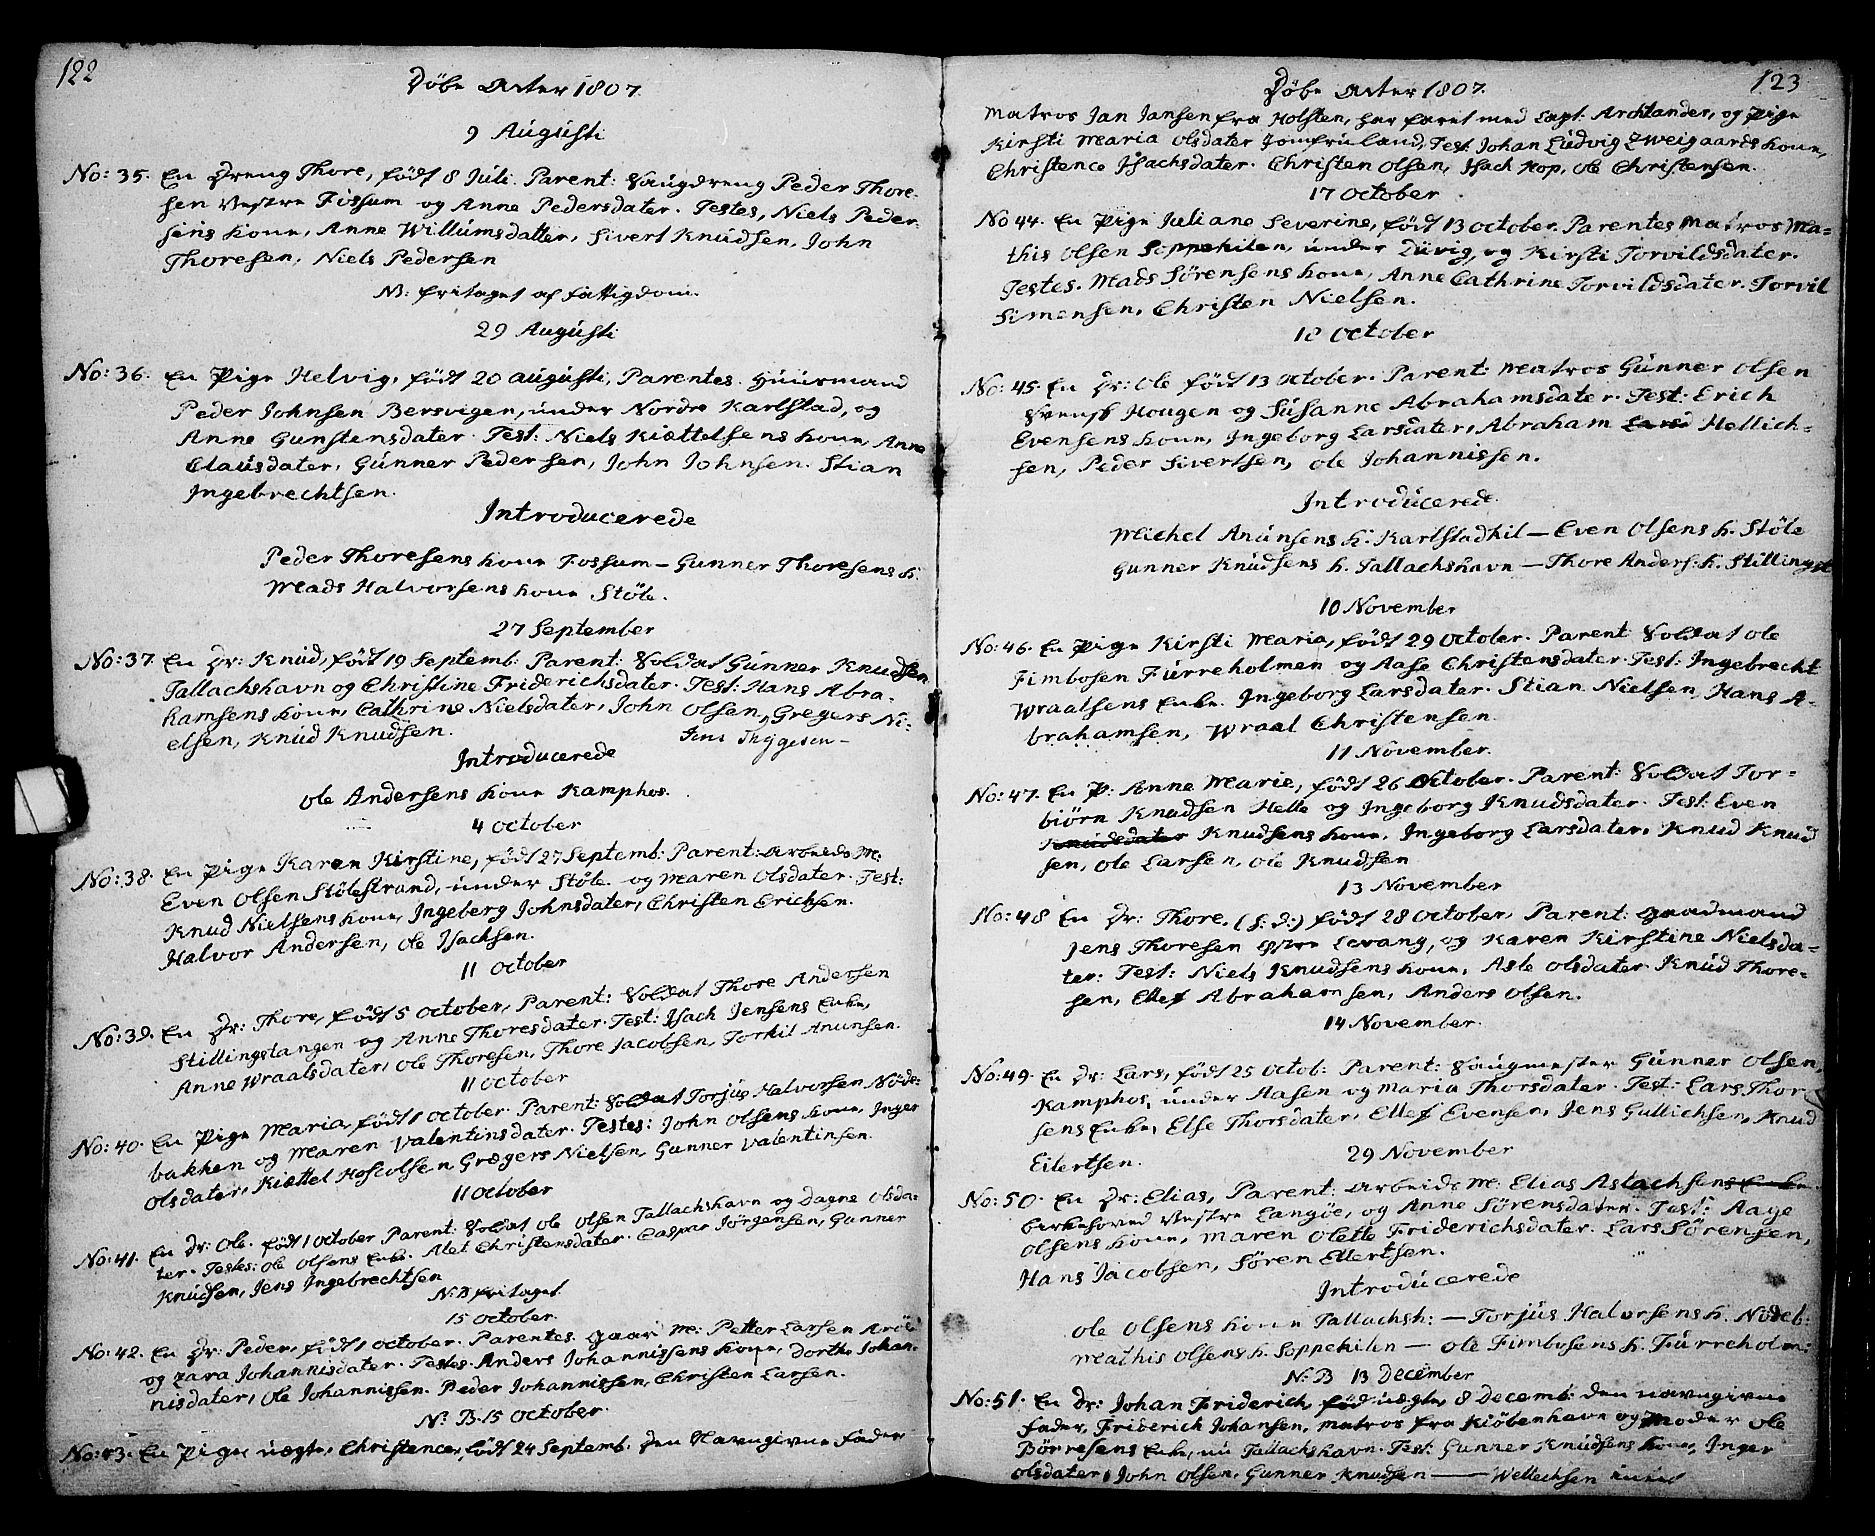 122
Döbe Acter 1807.
9 Augusti
No: 35. En Dreng Thore, födt 8 Juli. Parent: Saugdreng Peder Thore-
sen Vestre Fossum og Anne Pedersdater. Testes, Niels Peder-
sens kone, Anne Willumsdatter, Sivert Knudsen, John
Thoresen, Niels Pedersen
NB: fritaget af fattigdom.
29 Augusti
No: 36. En Pige Helvig, födt 20 augusti, Parentes. Huusmand
Peder Johnsen Bersvigen, under Nordre Karlstad, og
Anne Gunstensdater. Test: Niels Kiættelsens kone, Anne
Clausdater, Gunner Pedersen, John Johnsen. Stian
Ingebrechtsen.
Introducerede
Peder Thoresens kone Fossum – Gunner Thoresens k.
Mads Halvorsens kone Stöle.
27 September
No: 37. En Dr: Knud, födt 19 Septemb: Parent: Soldat Gunner Knudsen
Tallachshavn og Christine Friderichsdater. Test: Hans Abra-
hamsens kone, Cathrine Nielsdater, John Olsen, Gregers Ni-
elsen, Knud Knudsen. Jens Thygesen –
Introducerede
Ole Andersens kone Kamphos.
4 October
No: 38. En Pige Karen Kirstine, födt 27 Septemb: Parent: Arbeids M:
Even Olsen Stölestrand, under Stöle og Maren Olsdater. Test:
Knud Nielsens kone, Ingeberg Johnsdater, Christen Erichsen.
Halvor Andersen, Ole Isachsen.
11 October
No: 39. En Dr: Thore, födt 5 October, Parent: Soldat Thore Andersen
Stillingstangen og Anne Thoresdater. Test: Isach Jensens Enke,
Anne Wraalsdater, Ole Thoresen, Thore Jacobsen, Torkil Anunsen.
11 October
No: 40. En Pige Maria, födt 1 October. Parent: Soldat Torjus Halvorsen Node-
bakken og Maren Valentinsdater. Testes: John Olsens kone, Inger
Olsdater, Kiættel Hofvolsen, Grægers Nielsen, Gunner Valentinsen.
11 October
No: 41. En Dr: Ole. födt 1 October Parent: Soldat Ole Olsen Tallachshavn og Dagne Olsda-
ter. Testes: Ole Olsens Enke. Alet Christensdater. Caspar Jörgensen, Gunner
Knudsen, Jens Ingebrechtsen
N.B fritaget
15 October.
No: 42. En Dr: Peder, födt 1 October. Parentes. Gaard M: Petter Larsen Aröe
og Zara Johannisdater. Testes. Anders Johannissens kone, Dorthe Johan-
nisdater, Ole Johannissen. Peder Johannissen, Christen Larsen.
N. B. 15 October.
No: 43. En Pige uægte, Christence, födt 24 Septemb. Den Navngivne Fader
123
Döbe Acter 1807.
Matros Jan Jansen fra Holsten, har faret med Capt. Archtander, og Pige
Kirsti Maria Olsdater Jomfruland. Test. Johan Ludvig Zweigaards kone,
Christence Isachsdater. Christen Olsen, Isach Hop, Ole Christensen.
17 October
No 44. En Pige Juliane Severine, födt 13 October. Parentes Matros Ma-
this Olsen Soppekilen, under Züvig, og Kirsti Torvildsdater.
Testes. Mads Sörensens kone, Anne Cathrine Torvildsdater. Torvil
Simensen, Christen Nielsen.
18 October
No: 45. En Dr: Ole födt 13 October. Parent: Matros Gunner Olsen
Svensk Hougen og Susanne Abrahamsdater. Test: Erich
Evensens kone, Ingeborg Larsdater, Abraham Hellich-
sen, Peder Sivertsen, Ole Johannissen.
Introducerede
Michel Anunsens k: Karlstadkil – Even Olsens k. Stöle
Gunner Knudsens k. Tallachshavn – Thore Anders: k. Stillingst
10 November
No: 46. En Pige Kirsti Maria, födt 29 October. Parent Soldat Ole
Fimbosen Furreholmen og Aase Christensdater. Test: Ingebrecht
Wraalsens Enke. Ingeborg Larsdater. Stian Nielsen, Hans A-
brahamsen, Wraal Christensen.
11 November.
No: 47. En P: Anne Marie, födt 26 October. Parent: Soldat Tor-
biörn Knudsen Helle og Ingeborg Knudsdater. Test: Even
Knudsdater Knudsens kone, Ingeborg Larsdater, Knud Knud
sen, Ole Larsen, Ole Knudsen
13 November
No: 48 En Dr: Thore. (f: d:) födt 28 October, Parent: Gaardmand
Jens Thoresen Östre Levang, og Karen Kirstine Nielsda-
ter. Test: Niels Knudsens kone, Asle Olsdater. Knud Thore-
sen, Ellef Abrahamsen, Anders Olsen.
14 November.
No: 49. En Dr: Lars, födt 25 Octob: Parent: Saugmester Gunner Olsen,
Kamphos, under Aasen og Maria Thorsdater. Test: Lars Thor-
sens Enke, Else Thorsdater, Ellef Evensen, Jens Gullichsen, Knud
Eilertsen.
29 November
No: 50. En Dr: Elias, Parent: Arbeids M: Elias Aslachsens Enke
Birkehoved Vestre Langöe, og Anne Sörensdater. Test: Aage
Olsens kone, Maren Olette Friderichsdater. Lars Sörensen,
Hans Jacobsen, Sören Ellertsen.
Introducerede
Ole Olsens kone Tallachsh: – Torjus Halvorsens k. Nodeb:
Mathis Olsens k. Soppekilen – Ole Fimbosens k. Furreholm:
N: B 13 December
No: 51. En Dr: Johan Friderich, föd uægte, 8 Decemb: den navngivne
Fader, Friderich Johansen, Matros fra Kiöbenhavn og Moder Ole
Börresens Enke, nu Tallachshavn. Test: Gunner Knudsens kone, Inger
Olsdater, John Olsen, Gunner Knudsen –– Wellechsen